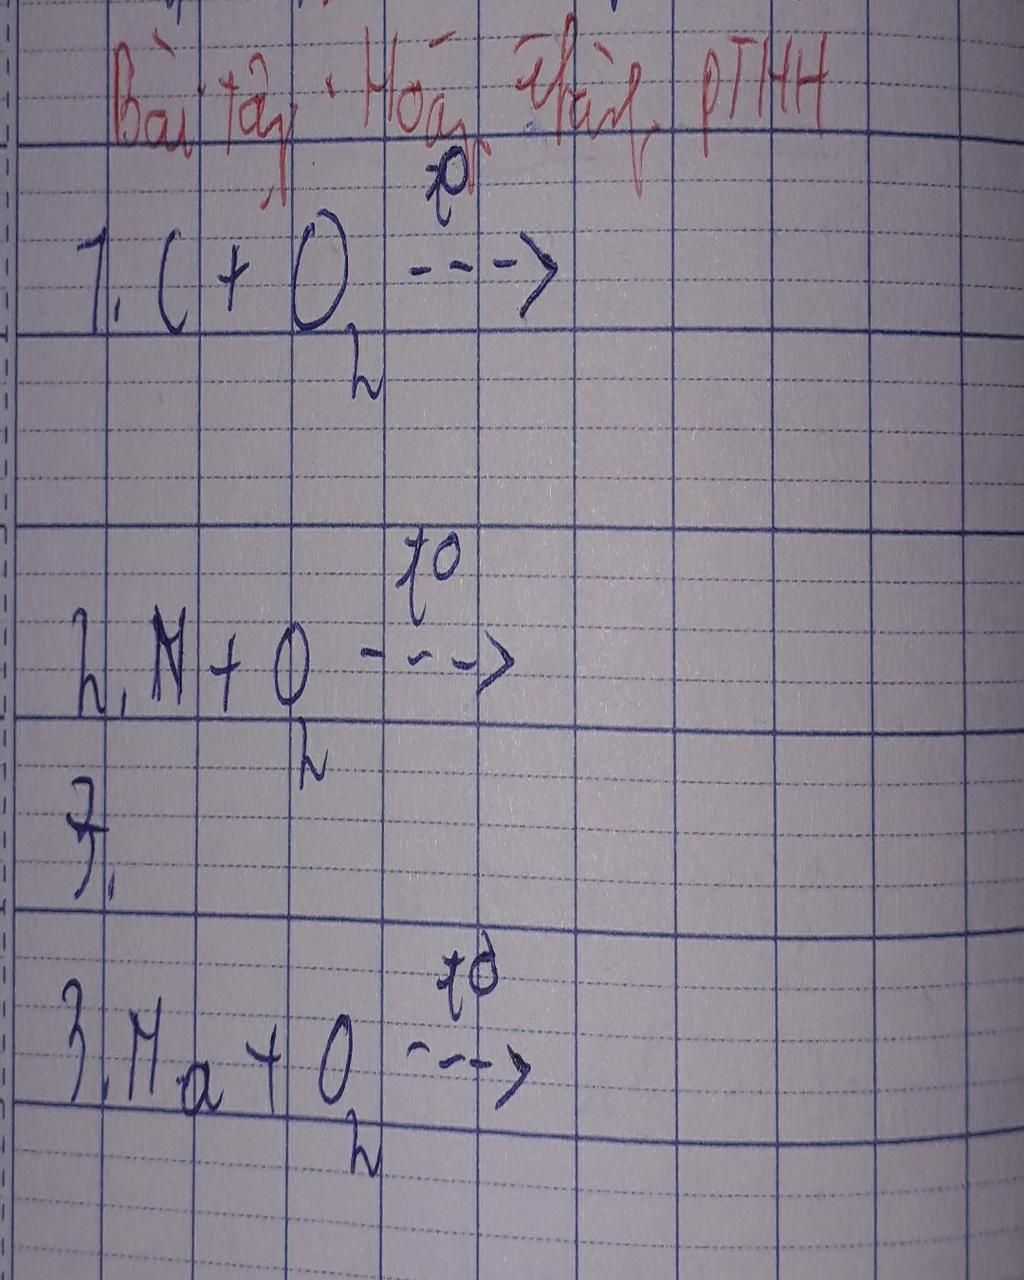 Bài tập: Hoàn thành PTHH
t°
1. C + O₂ --->
t°
2. N + O₂ --->
3.
t°
3. Na + O₂ --->